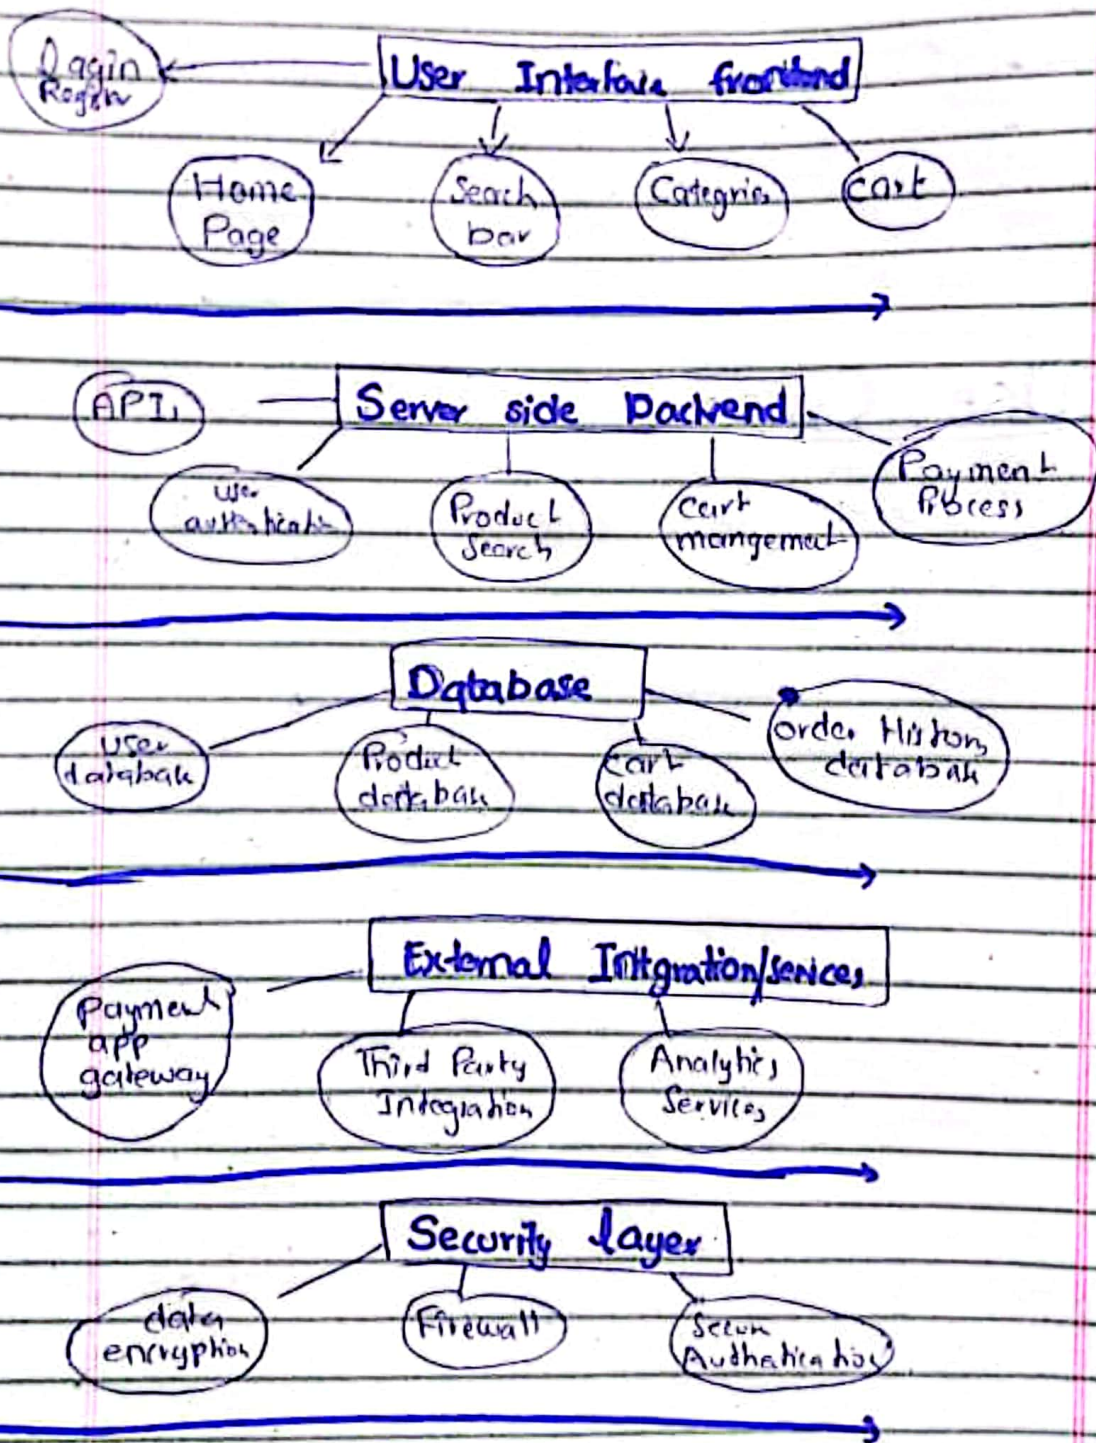 Login
User Interface frontend
Home
Page
Search
bar
Categries
Cart
API,
Server side Backend
User
authentication
Product
Search
Cart
mangement
Payment
Process
Database
User
database
Product
database
Cart
database
order History
database
External Intigration/services
Payment
app
gateway
Third Party
Integration
Analytics
Services
Security layer
data
encryption
Firewall